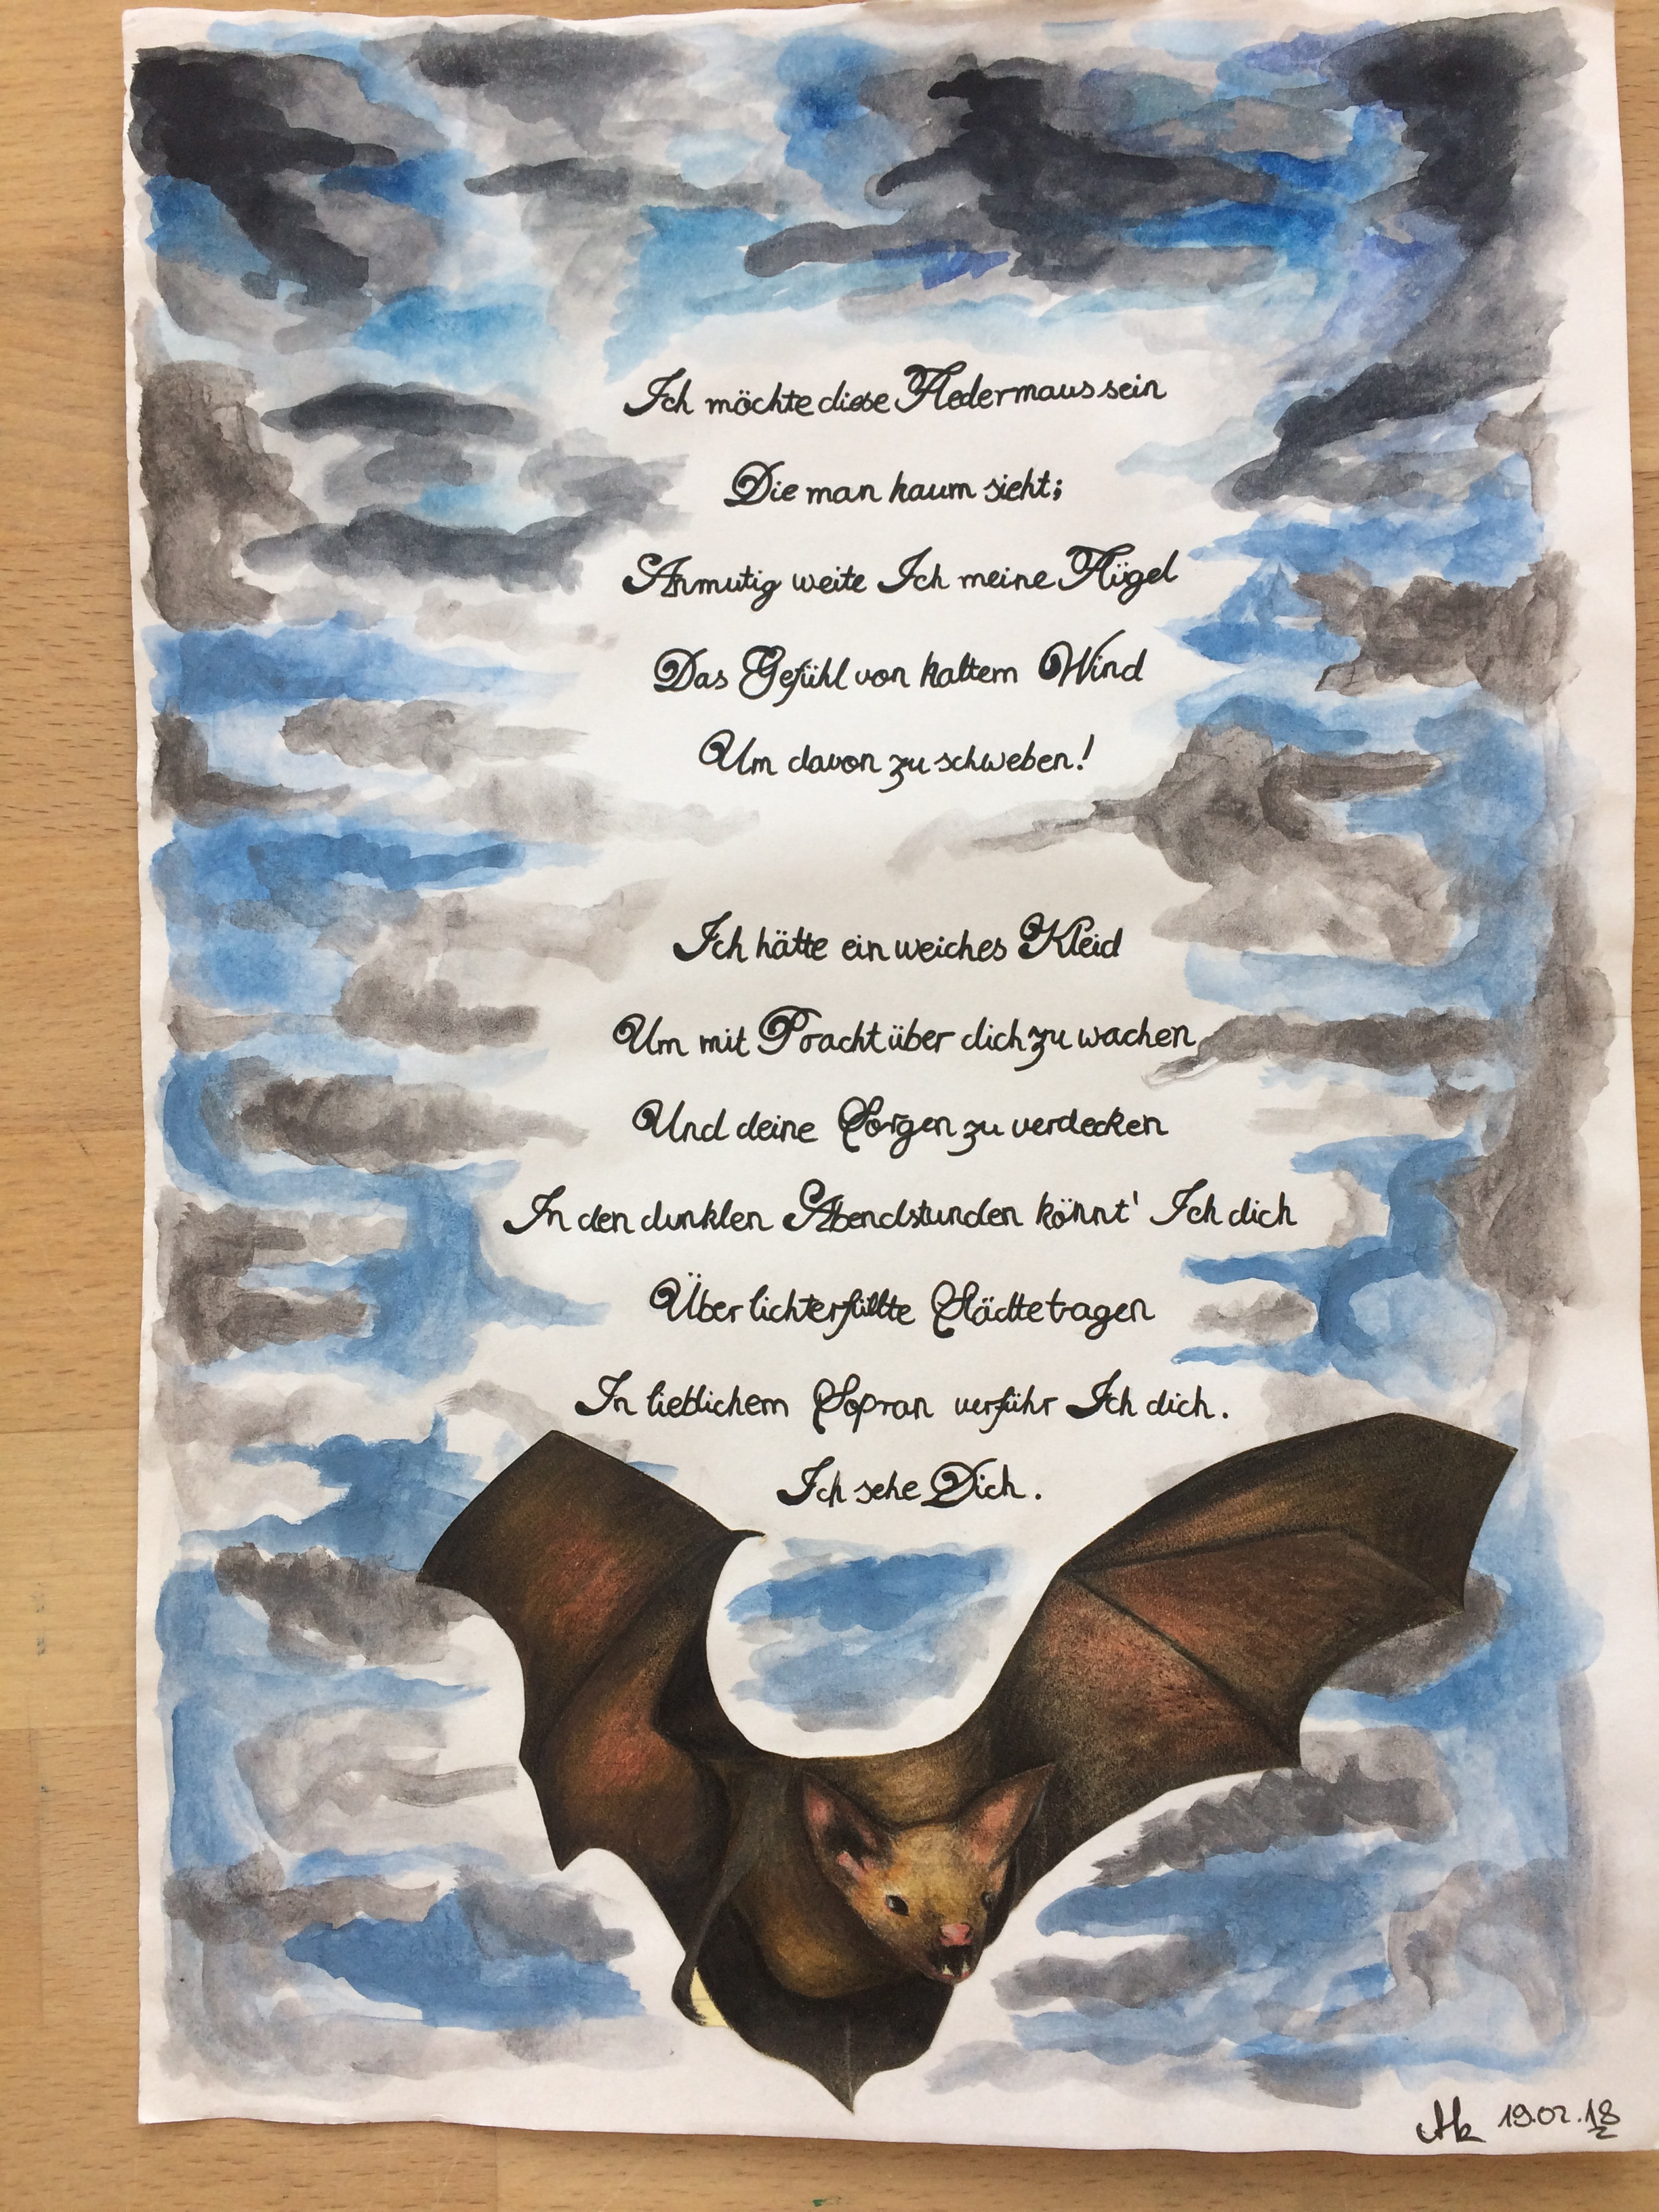 Ich möchte diese Fledermaus sein
Die man kaum sieht;
Anmutig weite Ich meine Flügel
Das Gefühl von kaltem Wind
Um davon zu schweben!
Ich hätte ein weiches Kleid
Um mit Pracht über dich zu wachen
Und deine Sorgen zu verdecken
In den dunklen Abendstunden könnt' Ich dich
Über lichterfüllte Städte tragen
In lieblichem Sopran verführ Ich dich.
Ich sehe Dich.
19.02.18